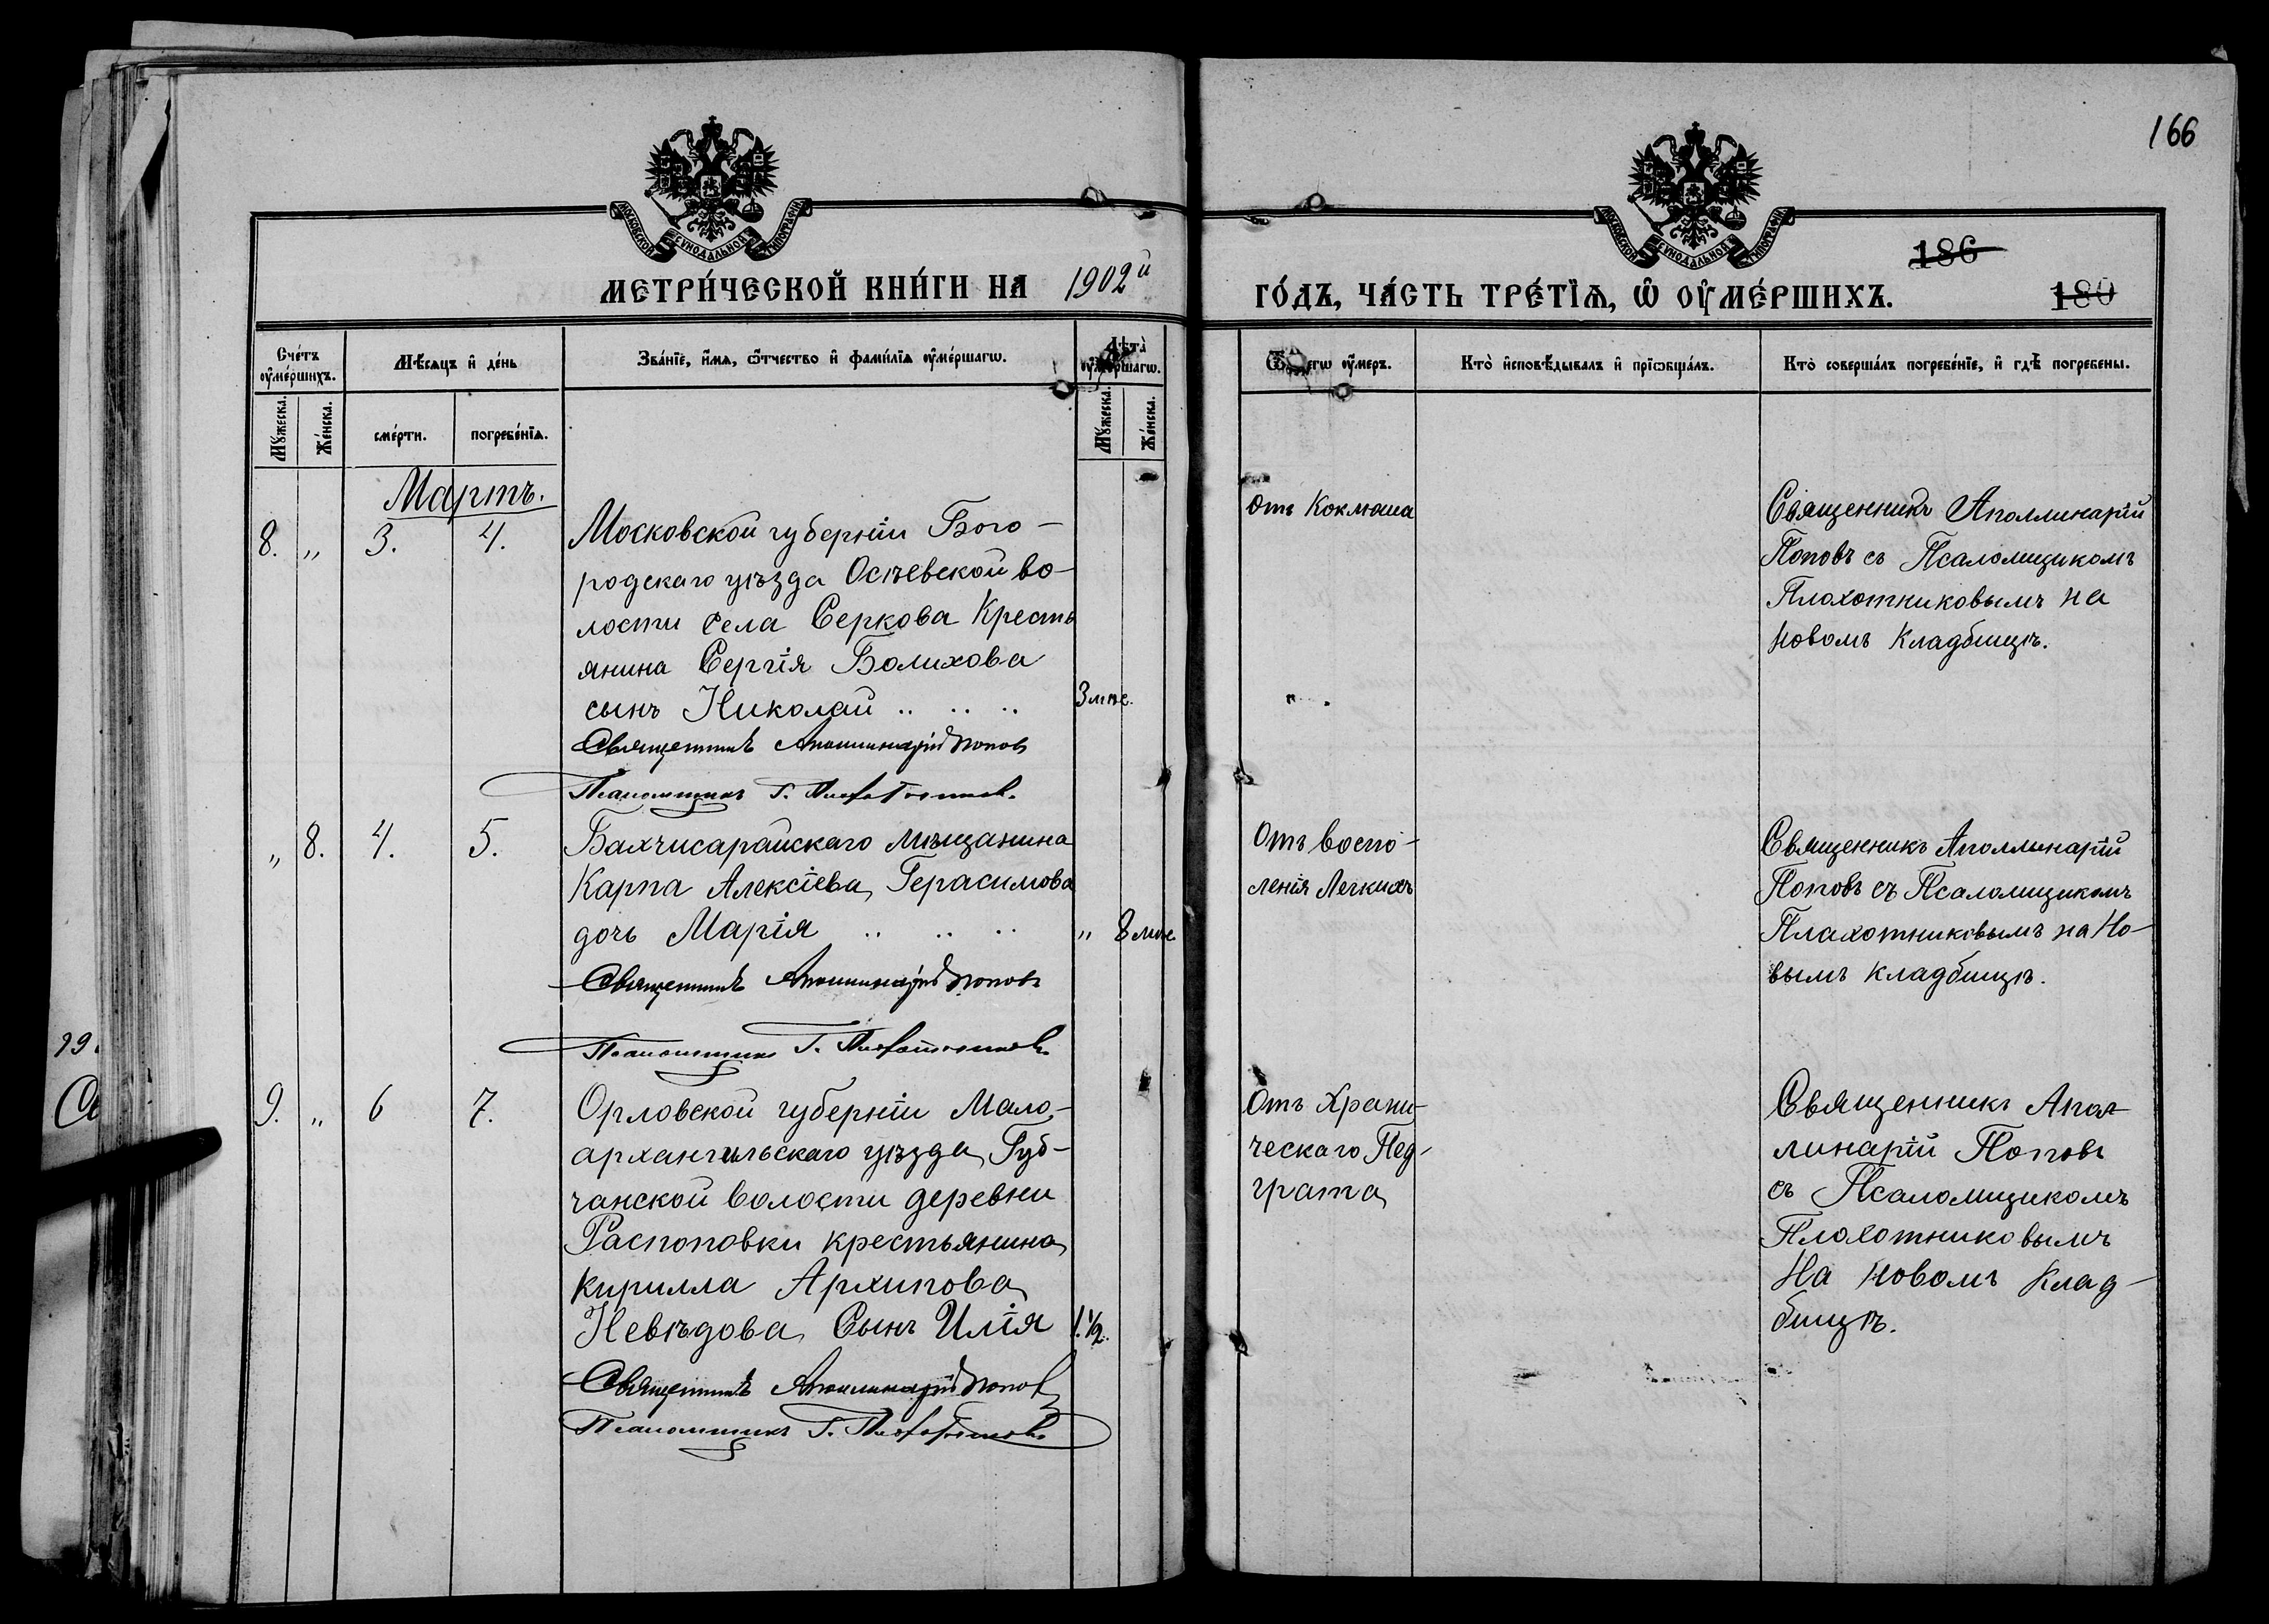 166
МОСКОВСКОЙ СУНОДАЛЬНОЙ ТИПОГРАФІИ
МОСКОВСКОЙ СУНОДАЛЬНОЙ ТИПОГРАФІИ
186
МЕТРИ́ЧЕСКОЙ КНИ́ГИ НА 1902й ГО́ДЪ, ЧА́СТЬ ТРЕ́ТЇѦ, Ѡ҆ ОУ҆МЕ́РШИХЪ.
180
Сче́тъ оу҆ме́ршихъ.
Мѣ́сяцъ и҆ де́нь
Зва́нїе, и҆́мѧ, ѻ҆́тчество и҆ фами́лїѧ оу҆ме́ршагѡ.
Лѣ̑та оу҆ме́ршагѡ.
Ѿ чегѡ̀ оу҆́меръ.
Кто̀ и҆сповѣ́дывалъ и҆ прїѡбща́лъ.
Кто̀ соверша́лъ погребе́нїе, и҆ гдѣ̀ погребены.
Мꙋ́жеска.
Же́нска.
сме́рти.
погребе́нїѧ.
Мꙋ́жеска.
Же́нска.
Мартъ.
8. „ 3. 4.
Московской губерніи Бого-
родскаго уѣзда Осѣевской во-
лости села Серкова Кресть
янина Сергія Болихова
сынъ Николай .. .. .. 3 мѣс.
Священникъ Аполлинарій Поповъ
Псаломщикъ Г. Плохотниковъ.
отъ Коклюша
Священникъ Аполлинарій
Поповъ съ Псаломщикомъ
Плохотниковымъ на
новомъ Кладбищѣ.
„ 8. 4. 5.
Бахчисарайскаго мѣщанина
Карпа Алексіева Герасимова
дочь Марія .. .. .. „ 8 мѣс
Священникъ Аполлинарій Поповъ
Псаломщикъ Г. Плохотниковъ.
Отъ воспо-
ленія Легкихъ
Священникъ Аполлинарій
Поповъ съ Псаломщикомъ
Плахотниковымъ на Но-
вымъ кладбищѣ.
9. „ 6 7.
Орловской губерніи Мало-
архангильскаго уѣзда Губ-
чанской волости деревни
Распоповки крестьянина
Кирилла Архипова
Невѣдова Сынъ Илія 1.½.
Священникъ Аполлинарій Поповъ
Псаломщикъ Г. Плохотниковъ
Отъ Хрони-
ческаго Нед-
грата
Священникъ Апол-
линарій Поповъ
съ Псаломщикомъ
Плохотниковымъ
На новомъ Клад-
бищѣ.